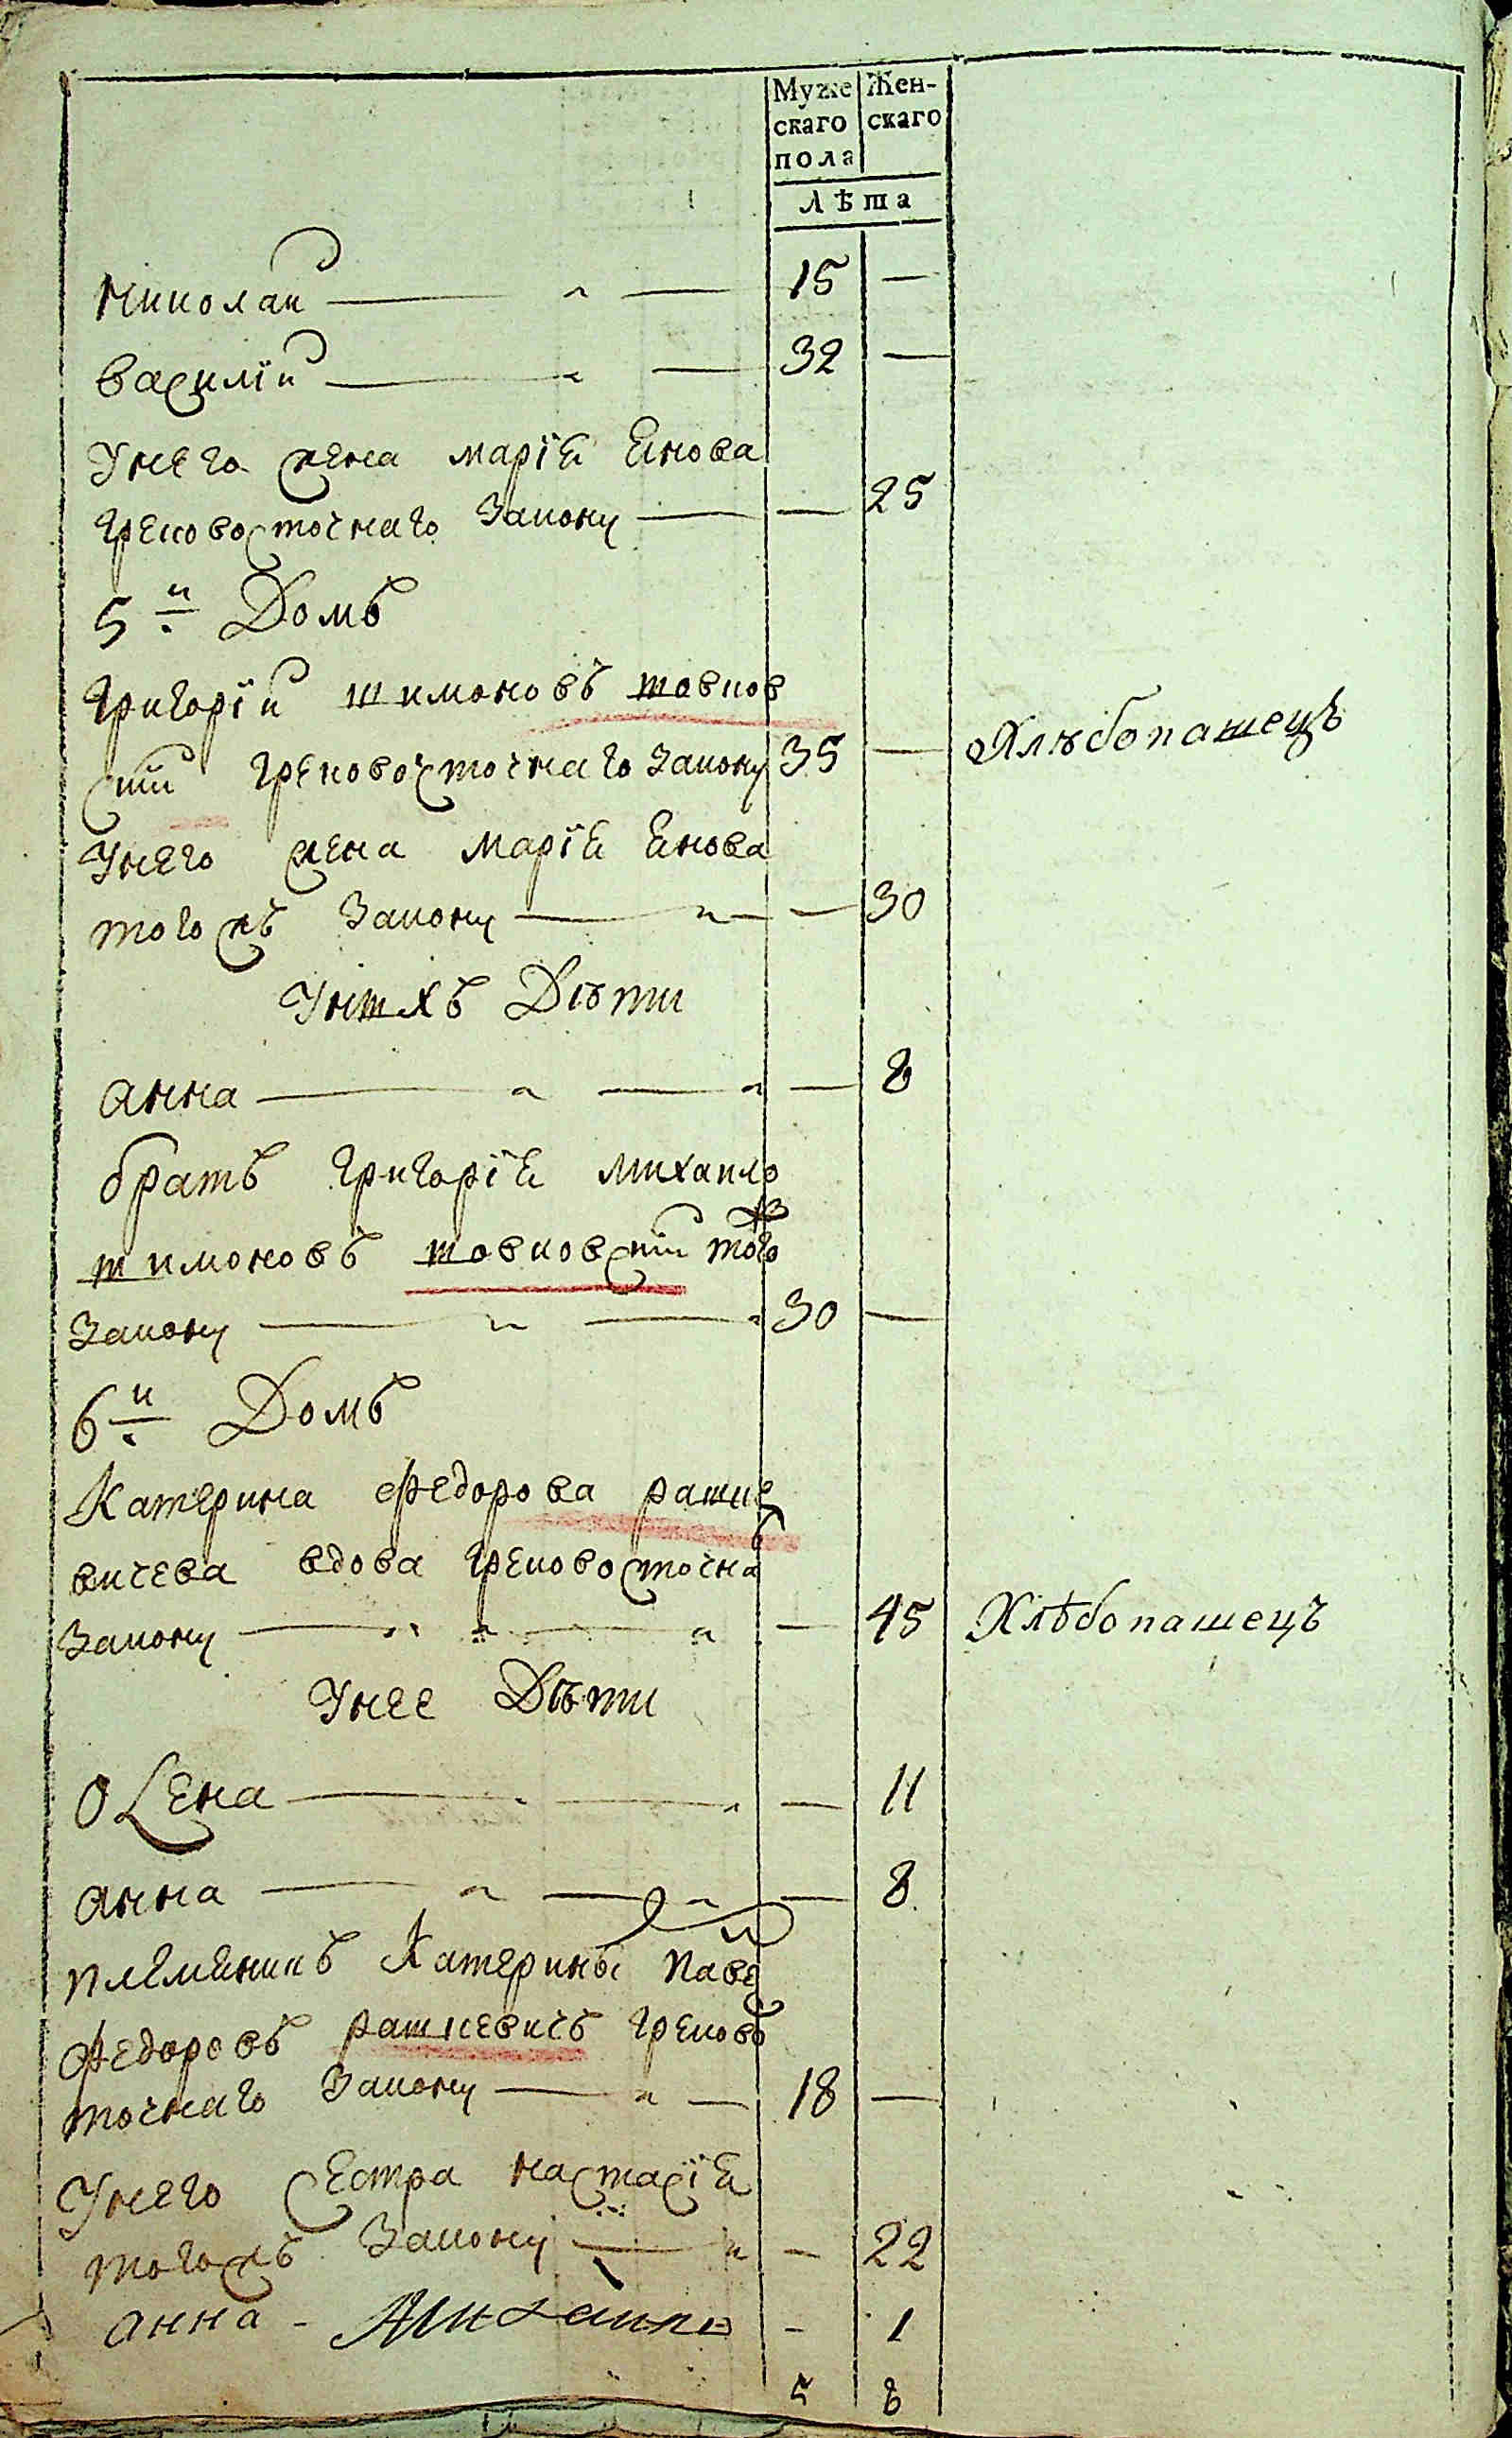 Муже
скаго
пола
Жен-
скаго
Лѣта
Николай — 15 —
Василій — 32 —
Унего жена Марія Енова
Грековосточнаго Закону — — 25
5й Домъ
Григорій Тимоновъ Товков
скій Грековосточнаго Закону 35 — Хлѣбопашецъ
Унего жена Марія Енова
тогожъ Закону — — 30
Унихъ Дѣти
Анна — — 8
братъ Григорія Михайло
Тимоновъ Товковскій тогожъ
Закону — 30 —
6й Домъ
Катерина Федорова Рашке
вичева вдова Грековосточнаго
Закону — — 45 Хлѣбопашецъ
Унее Дѣти
Олена — — 11
Анна — — 8
племеникъ Катерины Павел
Федоровъ Рашкевичъ Грековос
точнаго Закону — 18 —
Унего Сестра Настасія
тогожъ Закону — — 22
Анна - Михайло - 1
5 8